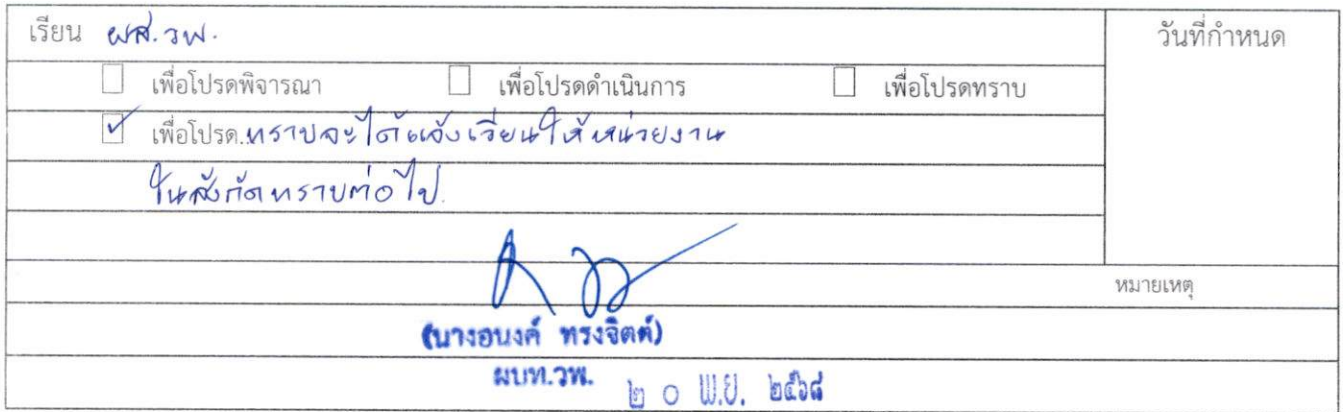 เรียน ผส.วพ. วันที่กำหนด
เพื่อโปรดพิจารณา เพื่อโปรดดำเนินการ เพื่อโปรดทราบ
เพื่อโปรด..ทราบจะได้แจ้งเวียนให้หน่วยงาน
ในสังกัดทราบต่อไป.
หมายเหตุ
(นางอนงค์ ทรงจิตต์)
ผบท.วพ.
๒๐ พ.ย. ๒๕๖๘